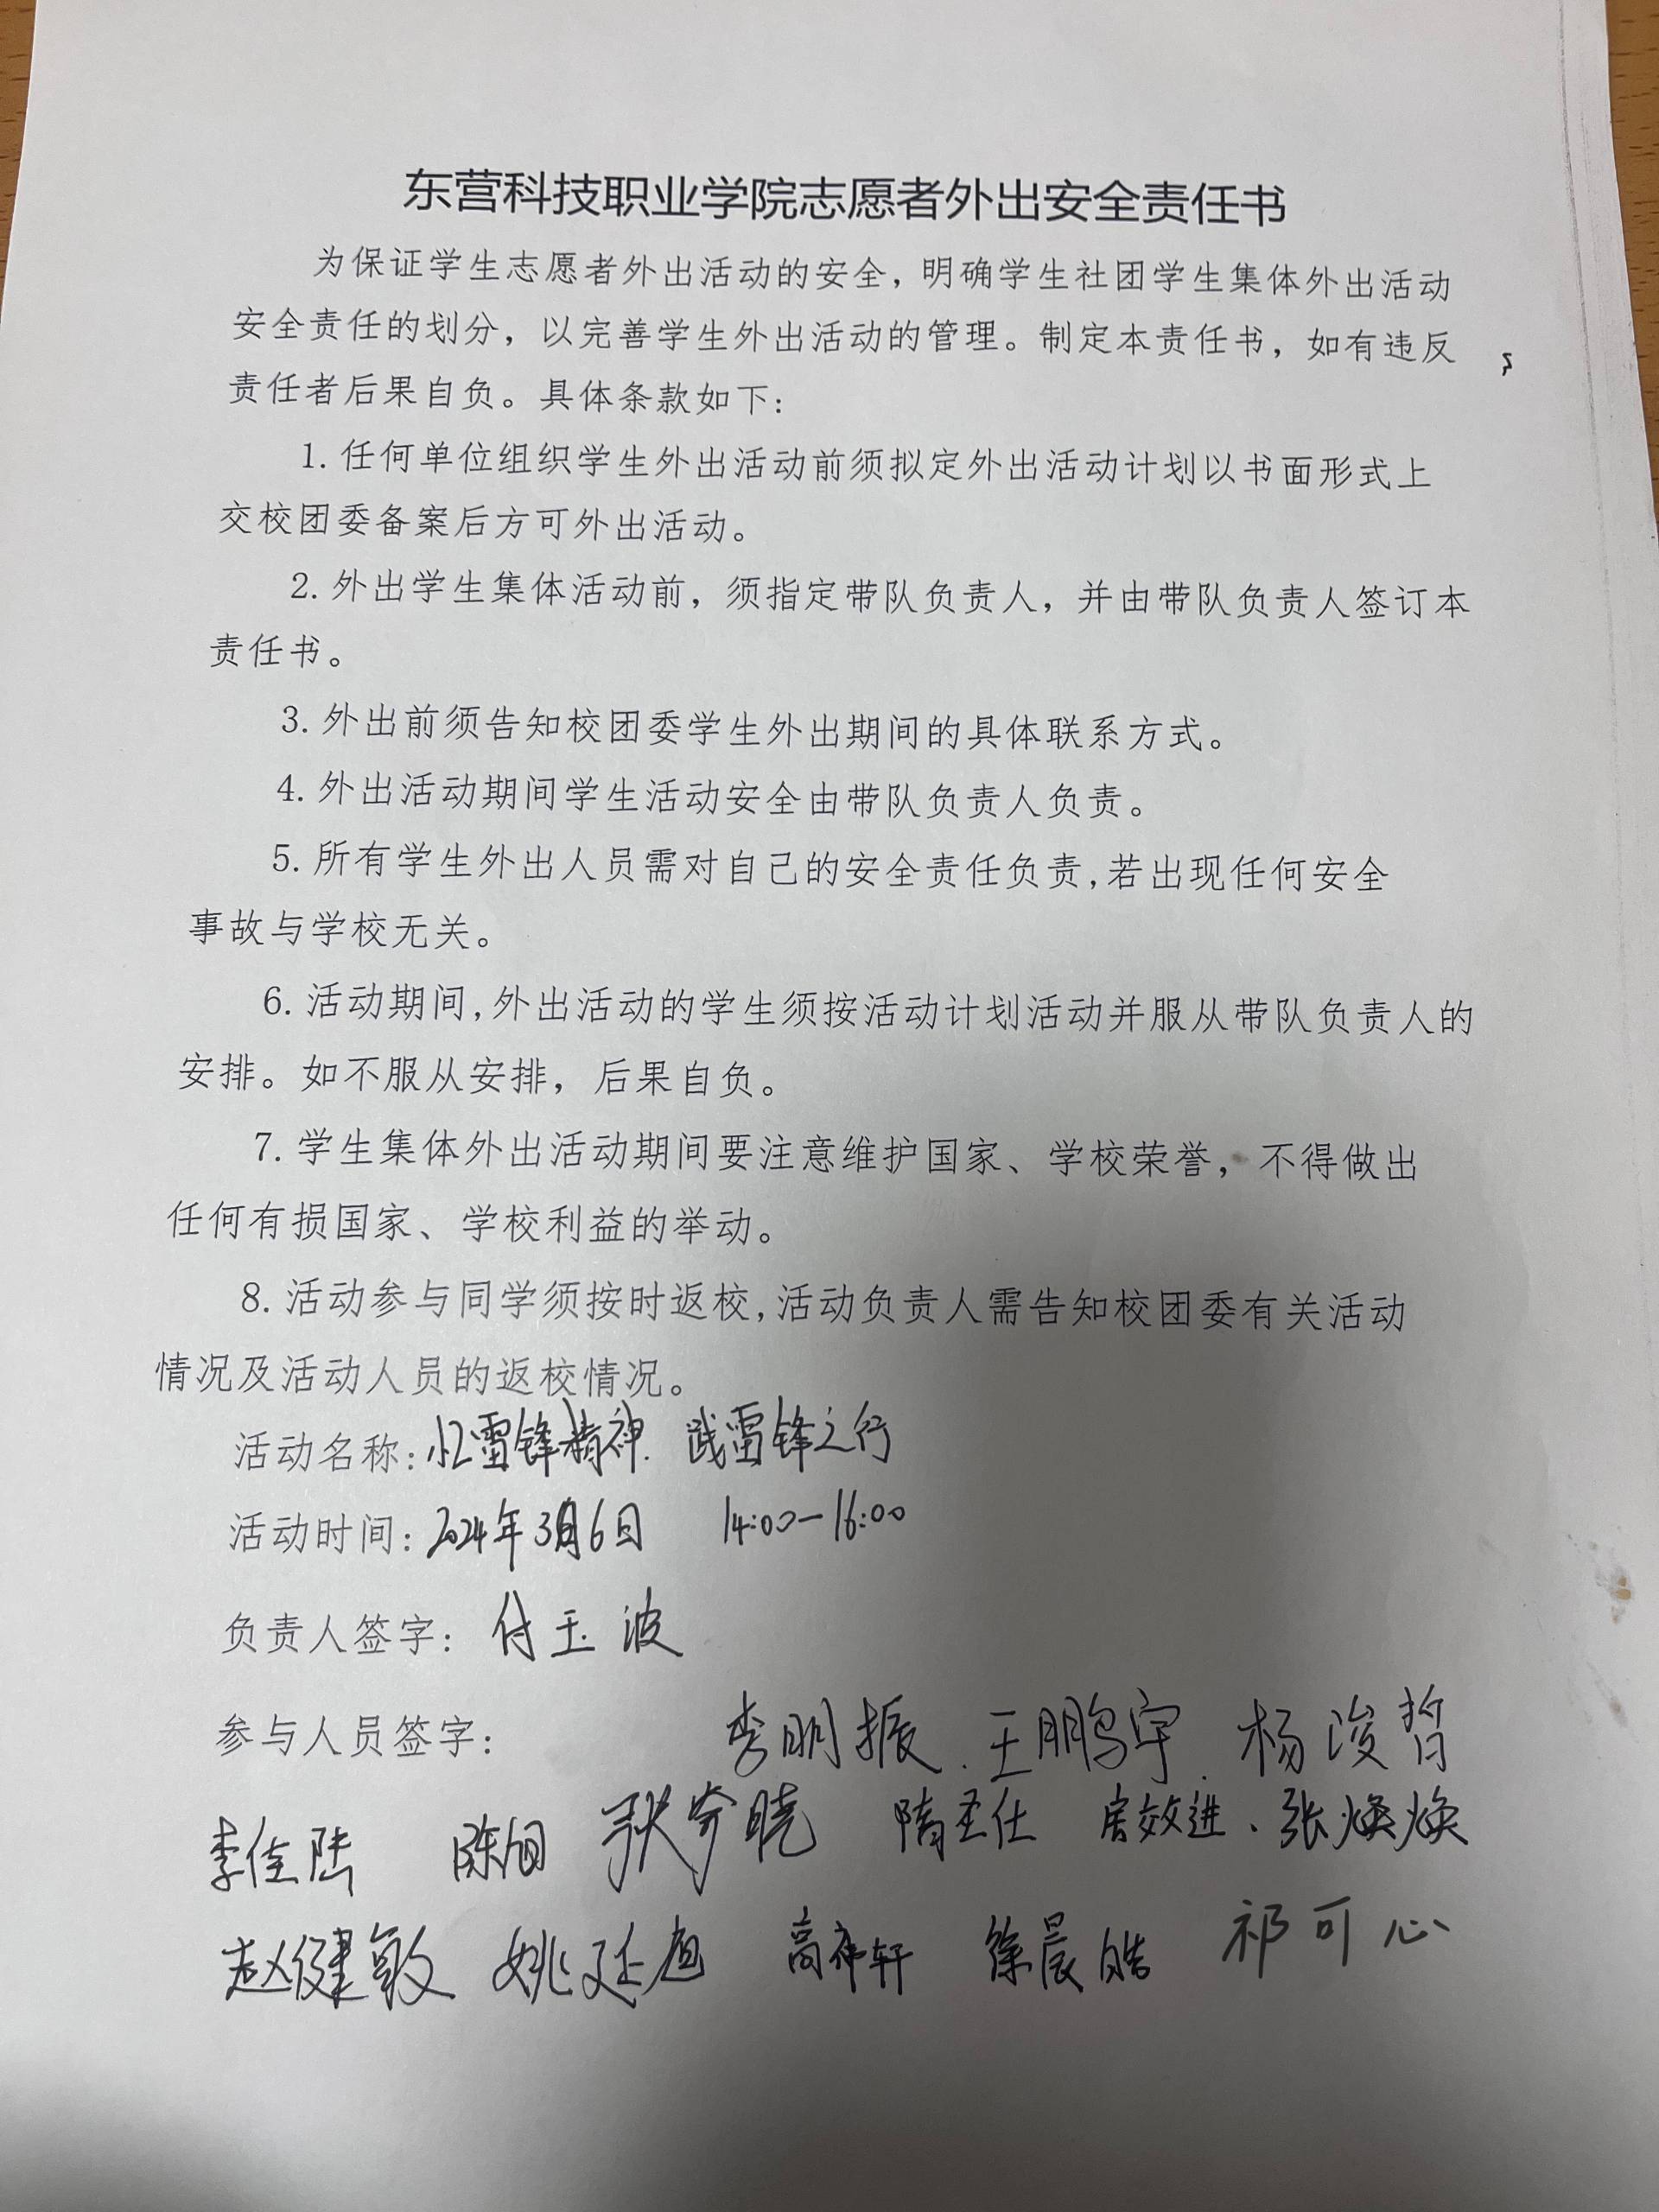 东营科技职业学院志愿者外出安全责任书
为保证学生志愿者外出活动的安全，明确学生社团学生集体外出活动
安全责任的划分，以完善学生外出活动的管理。制定本责任书，如有违反
责任者后果自负。具体条款如下：
1.任何单位组织学生外出活动前须拟定外出活动计划以书面形式上
交校团委备案后方可外出活动。
2.外出学生集体活动前，须指定带队负责人，并由带队负责人签订本
责任书。
3.外出前须告知校团委学生外出期间的具体联系方式。
4.外出活动期间学生活动安全由带队负责人负责。
5.所有学生外出人员需对自己的安全责任负责,若出现任何安全
事故与学校无关。
6.活动期间,外出活动的学生须按活动计划活动并服从带队负责人的
安排。如不服从安排，后果自负。
7.学生集体外出活动期间要注意维护国家、学校荣誉，不得做出
任何有损国家、学校利益的举动。
8.活动参与同学须按时返校,活动负责人需告知校团委有关活动
情况及活动人员的返校情况。
活动名称：忆雷锋精神. 践雷锋之行
活动时间：2024年3月6日 14:00—16:00
负责人签字：付玉波
参与人员签字： 李明振. 王鹏宇. 杨浚哲
李佳陆 陈旭 隋圣仕 房效进. 张焕焕
赵健敏 徐晨皓 祁可心